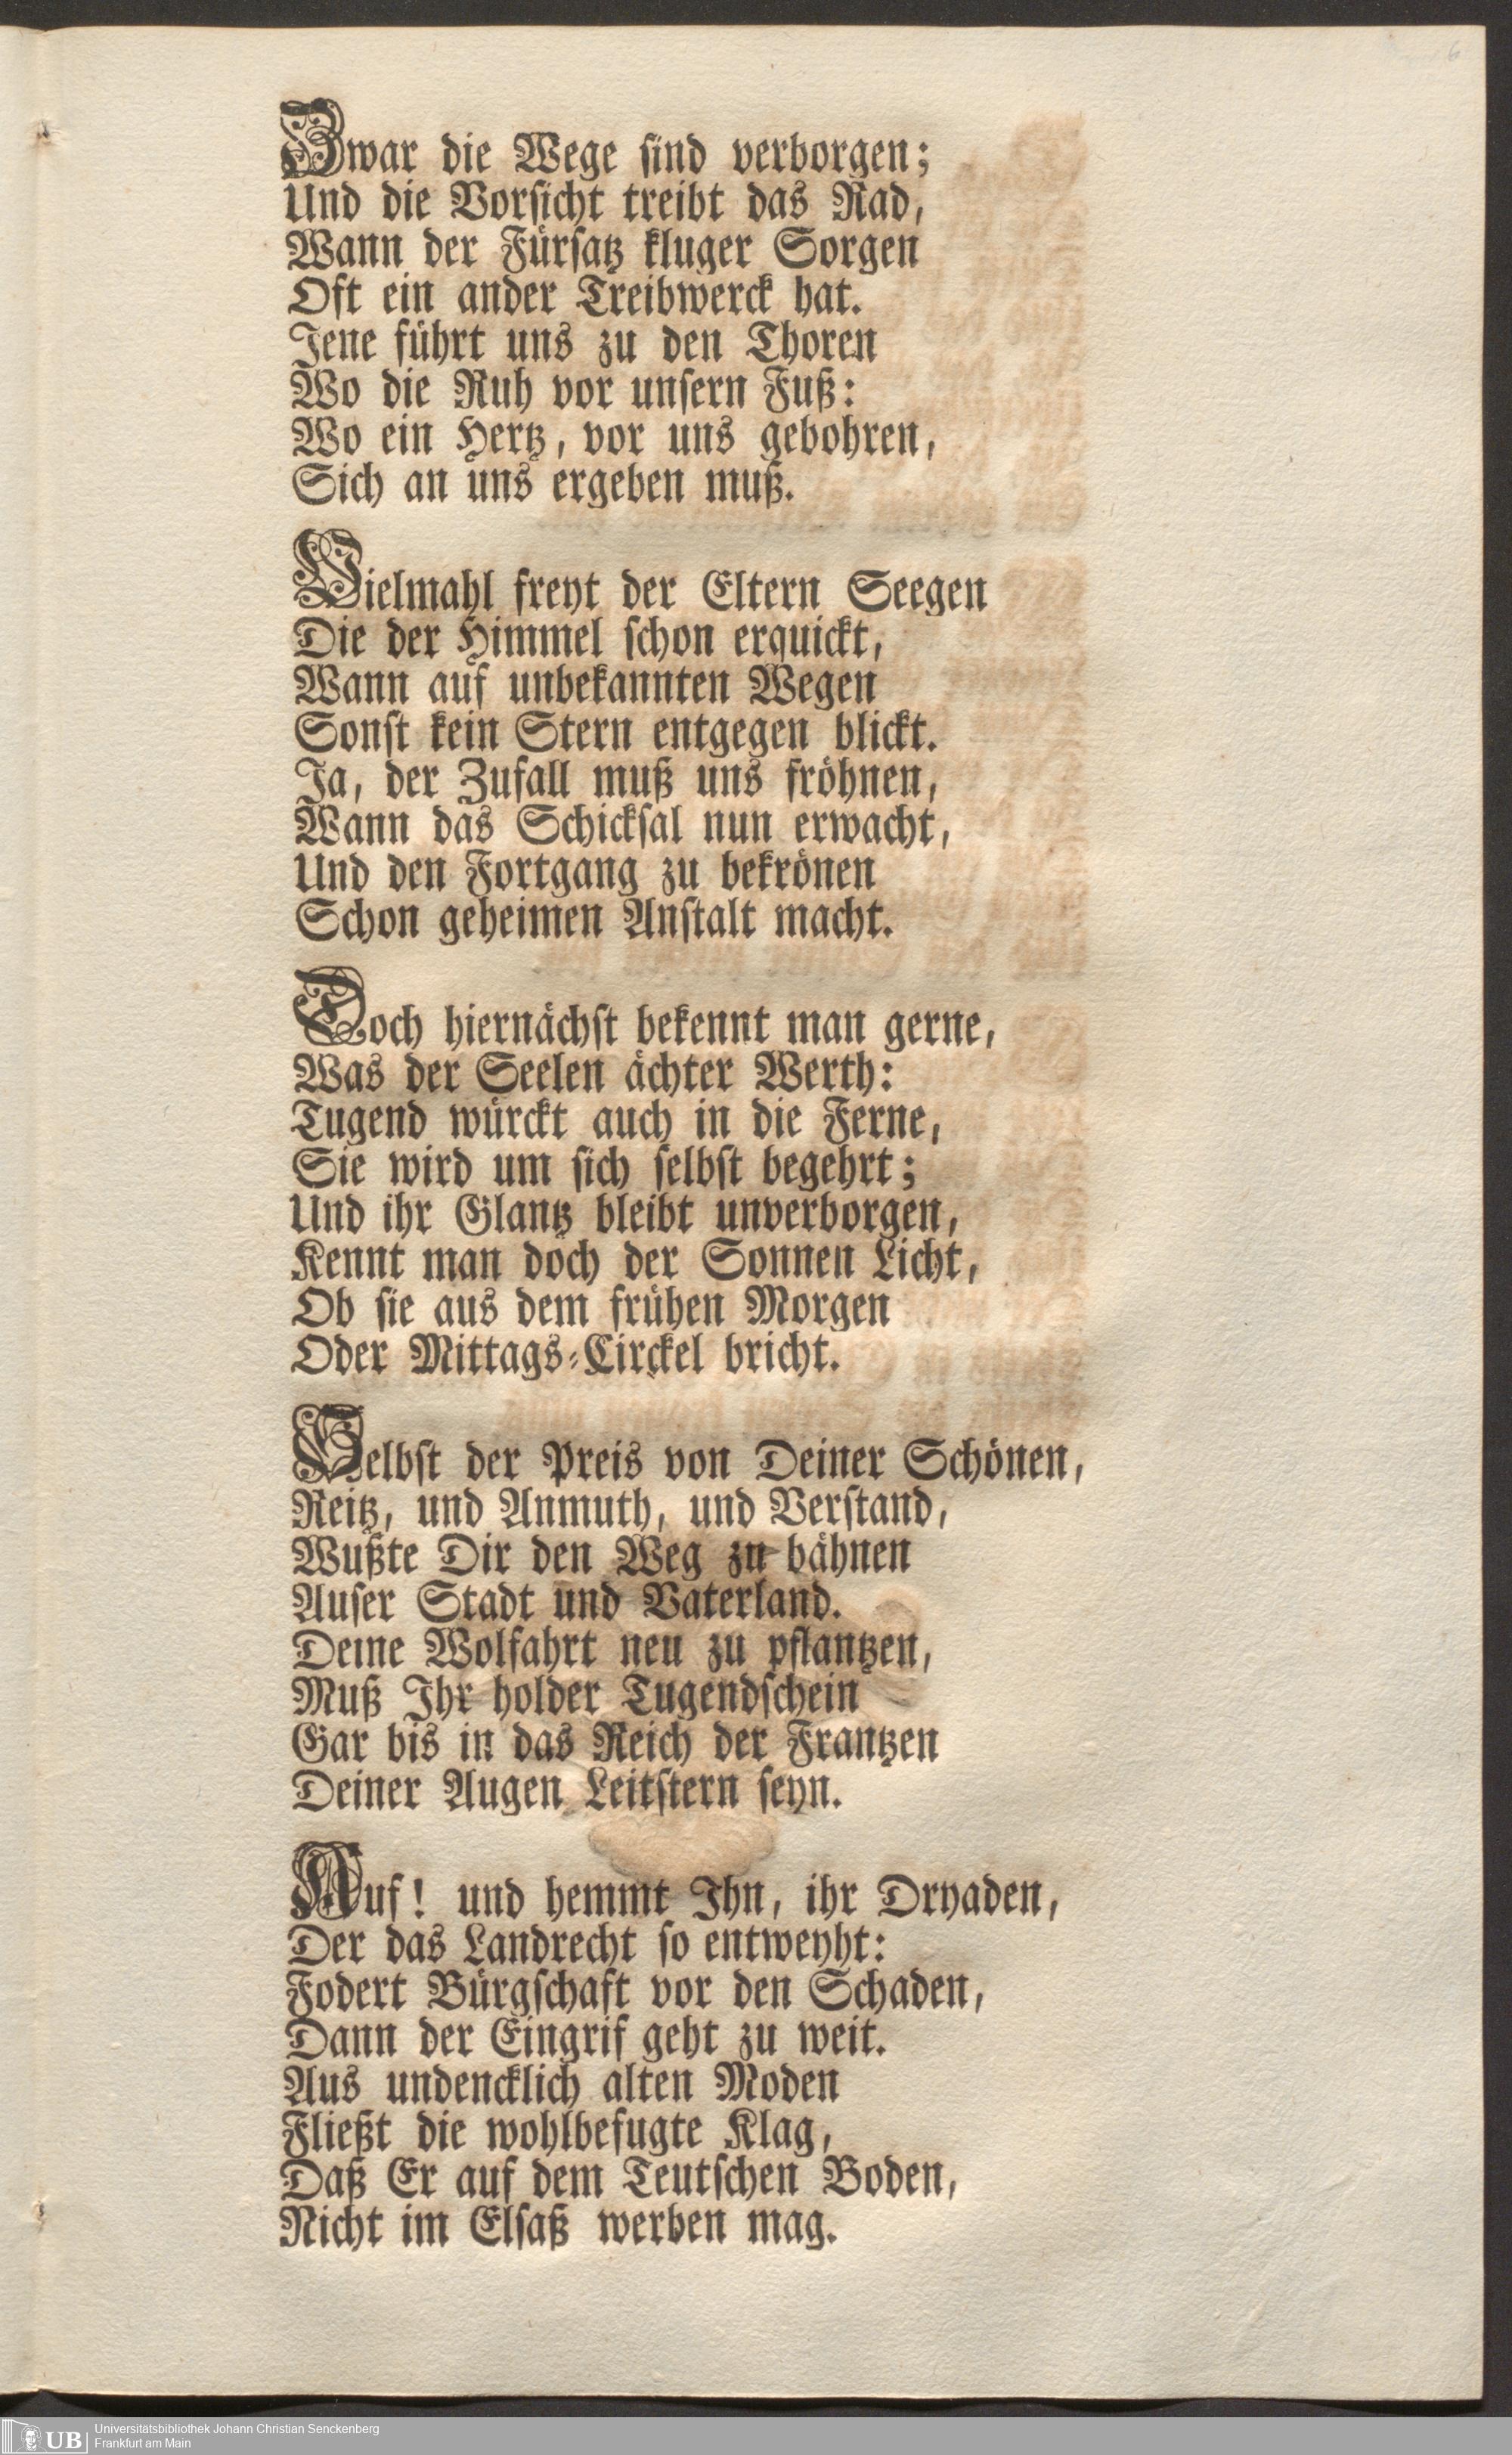 Zwar die Wege sind verborgen;
Und die Vorsicht treibt das Rad,
Wann der Fürsatz kluger Sorgen
Oft ein ander Treibwerck hat.
Jene führt uns zu den Thoren
Wo die Ruh vor unsern Fuß:
Wo ein Hertz, vor uns gebohren,
Sich an uns ergeben muß.
Vielmahl freyt der Eltern Seegen
Die der Himmel schon erquickt,
Wann auf unbekannten Wegen
Sonst kein Stern entgegen blickt.
Ja, der Zufall muß uns fröhnen,
Wann das Schicksal nun erwacht,
Und den Fortgang zu bekrönen
Schon geheimen Anstalt macht.
Doch hiernächst bekennt man gerne,
Was der Seelen ächter Werth:
Tugend würckt auch in die Ferne,
Sie wird um sich selbst begehrt;
Und ihr Glantz bleibt unverborgen,
Kennt man doch der Sonnen Licht,
Ob sie aus dem frühen Morgen
Oder Mittags-Circkel bricht.
Selbst der Preis von Deiner Schönen,
Reitz, und Anmuth, und Verstand,
Wußte Dir den Weg zu bähnen
Auser Stadt und Vaterland.
Deine Wolfahrt neu zu pflantzen,
Muß Ihr holder Tugendschein
Gar bis in das Reich der Frantzen
Deiner Augen Leitstern seyn.
Auf! und hemmt Ihn, ihr Dryaden,
Der das Landrecht so entweyht:
Fodert Bürgschaft vor den Schaden,
Dann der Eingrif geht zu weit.
Aus undencklich alten Moden
Fließt die wohlbefugte Klag,
Daß Er auf dem Teutschen Boden,
Nicht im Elsaß werben mag.
6
UB Universitätsbibliothek Johann Christian Senckenberg
Frankfurt am Main